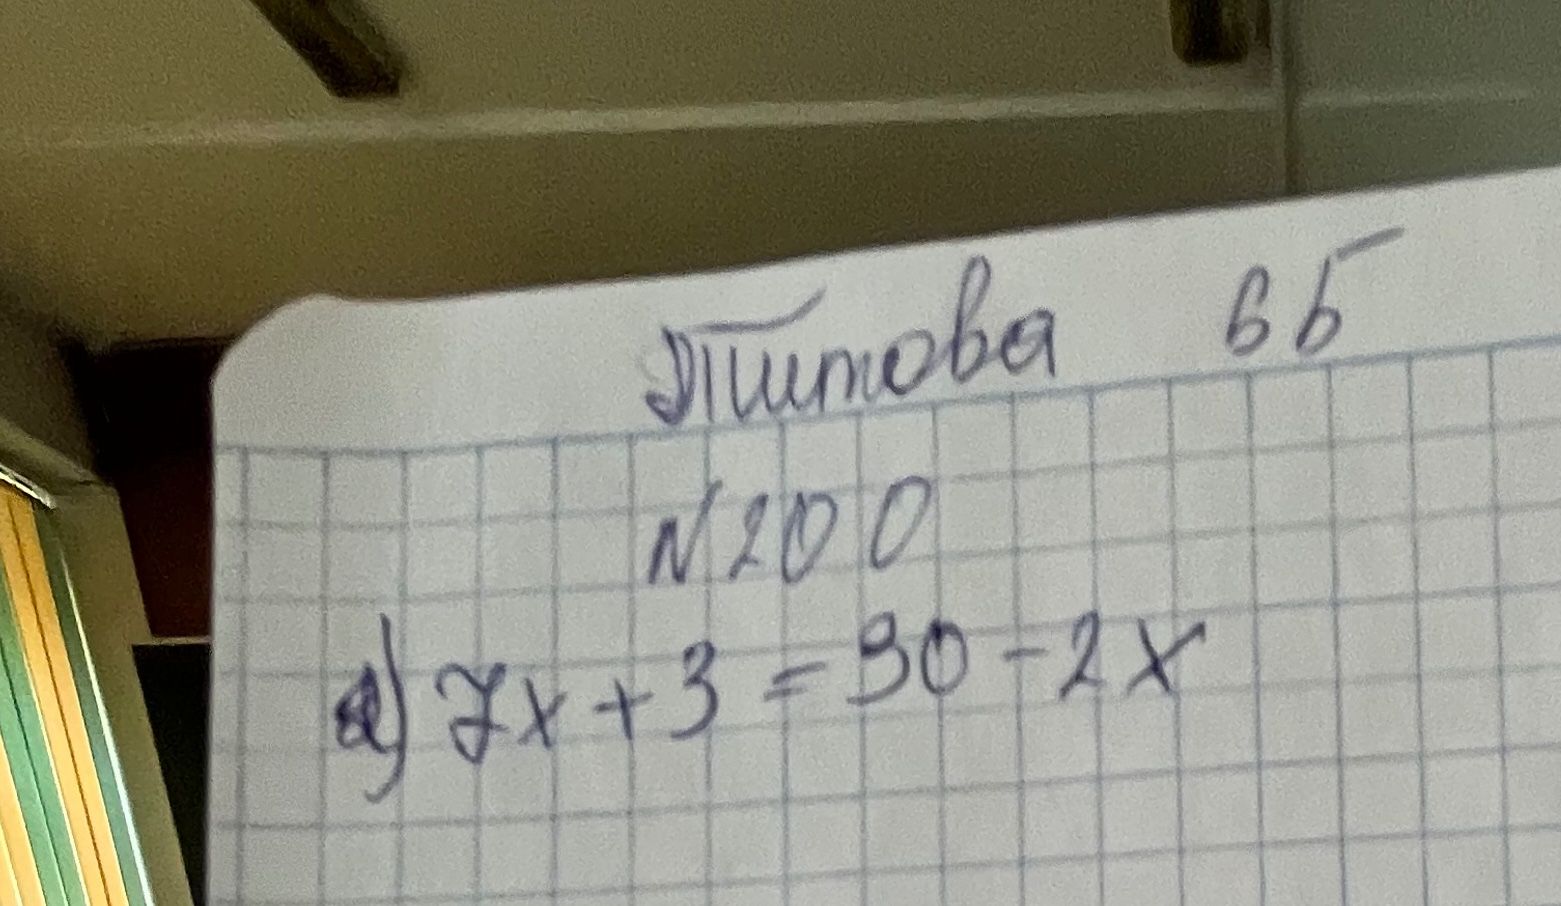 Титова 6Б
N200
а) 7x+3=30-2x